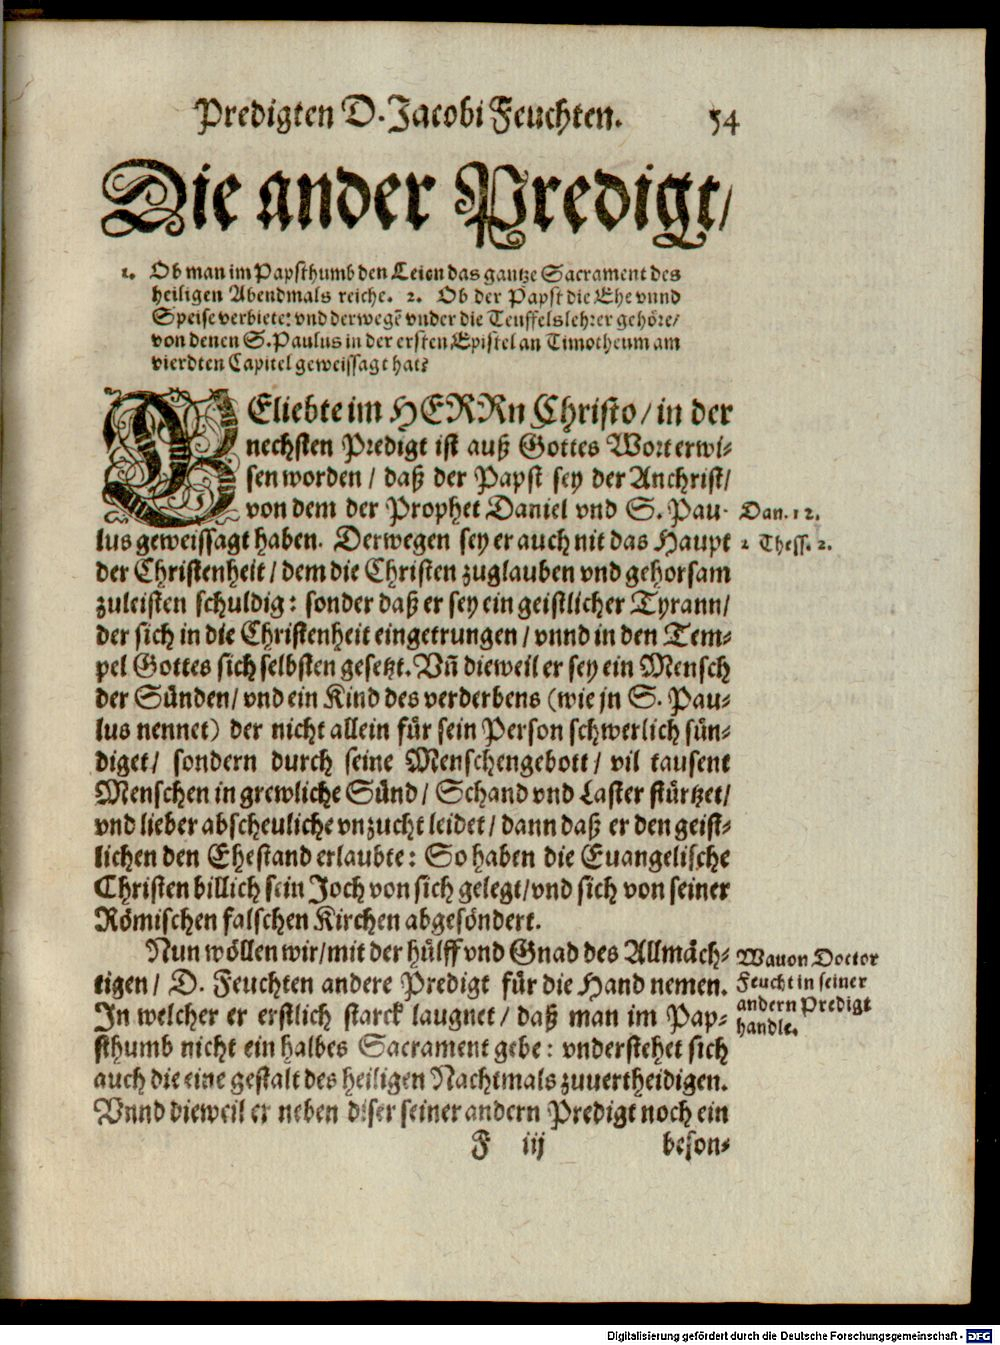 Predigten D. Jacobi Feuchten. 54
Die ander Predigt/
1. Ob man im Papsthumb den Leien das gantze Sacrament des
heiligen Abendmals reiche. 2. Ob der Papst die Ehe vnnd
Speise verbiete: vnd derwegẽ vnder die Teuffelslehrer gehöre/
von denen S. Paulus in der ersten Epistel an Timotheum am
vierdten Capitel geweissagt hat?
GEliebte im HERRn Christo/ in der
nechsten Predigt ist auß Gottes Wort erwi-
sen worden/ daß der Papst sey der Anchrist/
von dem der Prophet Daniel vnd S. Pau-
Dan. 12.
lus geweissagt haben. Derwegen sey er auch nit das Haupt
2 Thess. 2.
der Christenheit/ dem die Christen zuglauben vnd gehorsam
zuleisten schuldig: sonder daß er sey ein geistlicher Tyrann/
der sich in die Christenheit eingetrungen/ vnnd in den Tem-
pel Gottes sich selbsten gesetzt. Vñ dieweil er sey ein Mensch
der Sünden/ vnd ein Kind des verderbens (wie jn S. Pau-
lus nennet) der nicht allein für sein Person schwerlich sün-
diget/ sondern durch seine Menschengebott/ vil tausent
Menschen in grewliche Sünd/ Schand vnd Laster stürtzet/
vnd lieber abscheuliche vnzucht leidet/ dann daß er den geist-
lichen den Ehestand erlaubte: So haben die Euangelische
Christen billich sein Joch von sich gelegt/ vnd sich von seiner
Römischen falschen Kirchen abgesöndert.
Nun wöllen wir/ mit der hülff vnd Gnad des Allmäch-
tigen/ D. Feuchten andere Predigt für die Hand nemen.
In welcher er erstlich starck laugnet/ daß man im Pap-
sthumb nicht ein halbes Sacrament gebe: vnderstehet sich
auch die eine gestalt des heiligen Nachtmals zuuertheidigen.
Vnnd dieweil er neben diser seiner andern Predigt noch ein
Wauon Doctor
Feucht in seiner
andern Predigt
handle.
F iij beson-
Digitalisierung gefördert durch die Deutsche Forschungsgemeinschaft - DFG